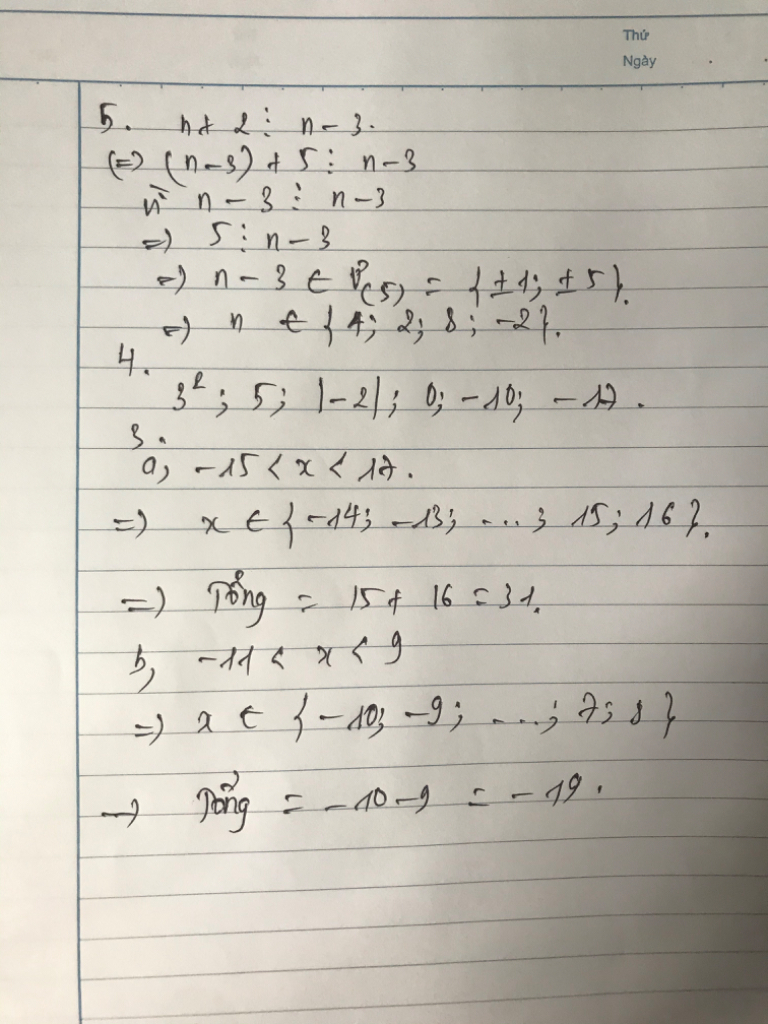 Thứ
Ngày
5. n + 2 ⋮ n - 3.
(=) (n-3) + 5 ⋮ n-3
vì n - 3 ⋮ n - 3
=) 5 ⋮ n - 3
=) n - 3 ∈ Ư(5) = {±1; ±5}.
=) n ∈ {4; 2; 8; -2}.
4.
3²; 5; |-2|; 0; -10; -17.
3.
a, -15 < x < 17.
=) x ∈ {-14; -13; ...; 15; 16}.
=) Tổng = 15 + 16 = 31.
b, -11 < x < 9
=) x ∈ {-10; -9; ...; 7; 8}
-) Tổng = -10 - 9 = -19.